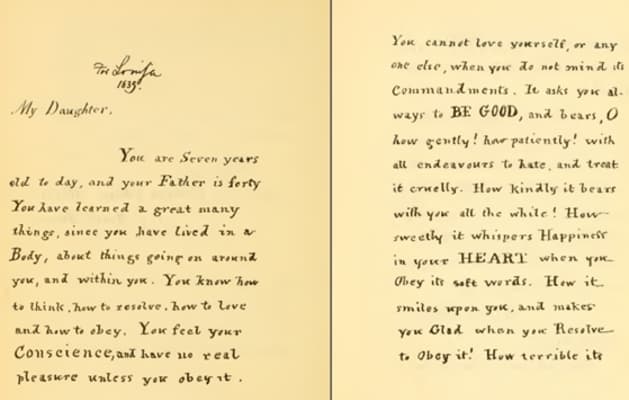 For Louisa
1839.
My Daughter,
You are Seven years
old to day, and your Father is forty
You have learned a great many
things, since you have lived in a
Body, about things going on around
you, and within you. You know how
to think, how to resolve, how to love
and how to obey. You feel your
Conscience, and have no real
pleasure unless you obey it.
You cannot love yourself, or any
one else, when you do not mind its
Commandments. It asks you al-
ways to BE GOOD, and bears, O
how gently! how patiently! with
all endeavours to hate, and treat
it cruelly. How kindly it bears
with you all the while! How
sweetly it whispers Happiness
in your HEART when you
Obey its soft words. How it
smiles upon you, and makes
you Glad when you Resolve
to Obey it! How terrible its